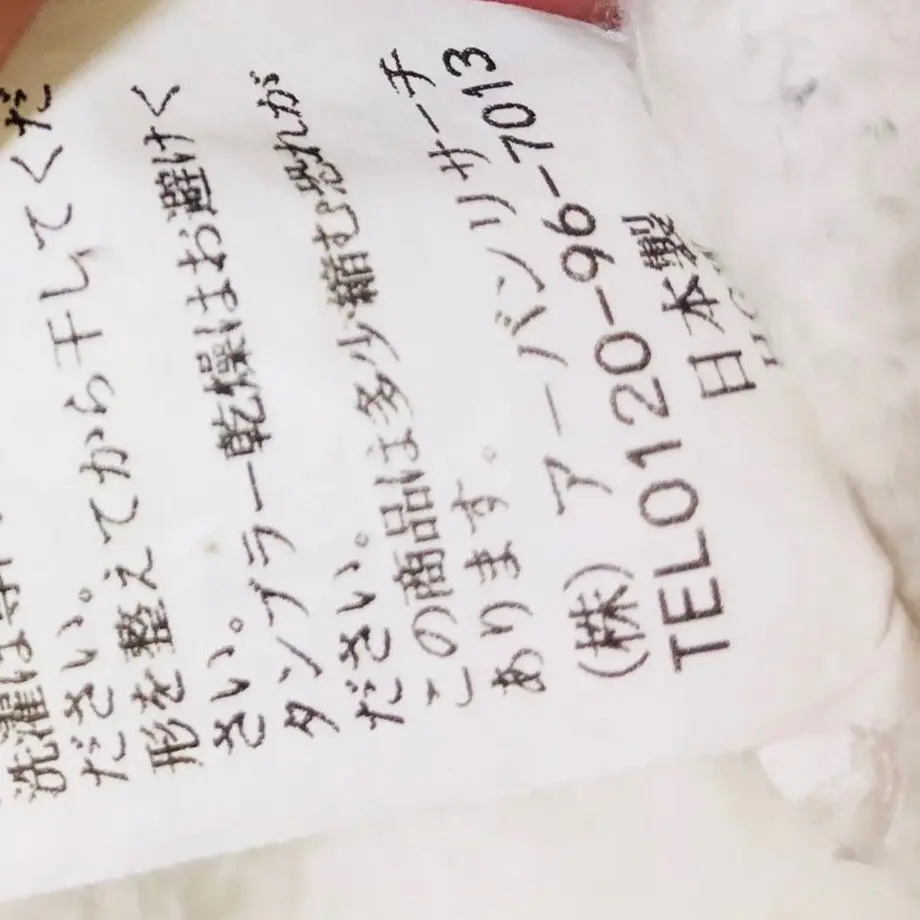 洗濯は
ださい。
形を整えてから干してくだ
さい。
タンブラー乾燥はお避けく
ださい。
この商品は多少縮む恐れが
あります。
(株) アーバンリサーチ
TEL0120-96-7013
日本製